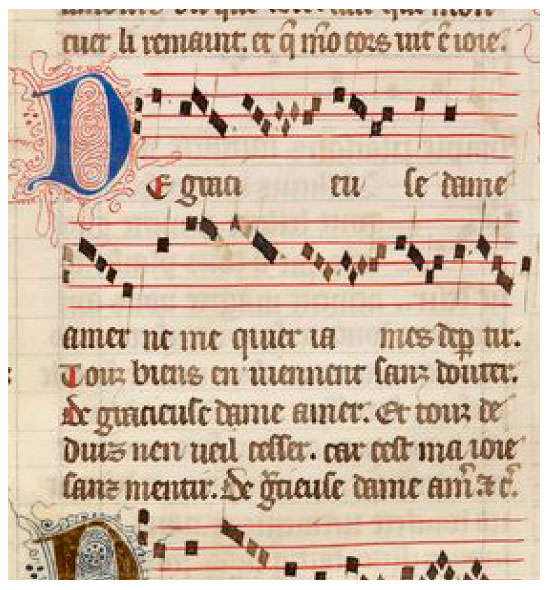 cuer li remaint. et q̃ mõ cors uit ẽ ioie.
De graci eu se dame
amer ne me quier ia mes dep̱ tir.
Touz biens en uiennent sanz douter.
De gracieuse dame amer. Et touz de
duiz nen ueil cesser. car cest ma ioie
sanz mentir. De gͣcieuse dame am̃. ⁊ c̃.